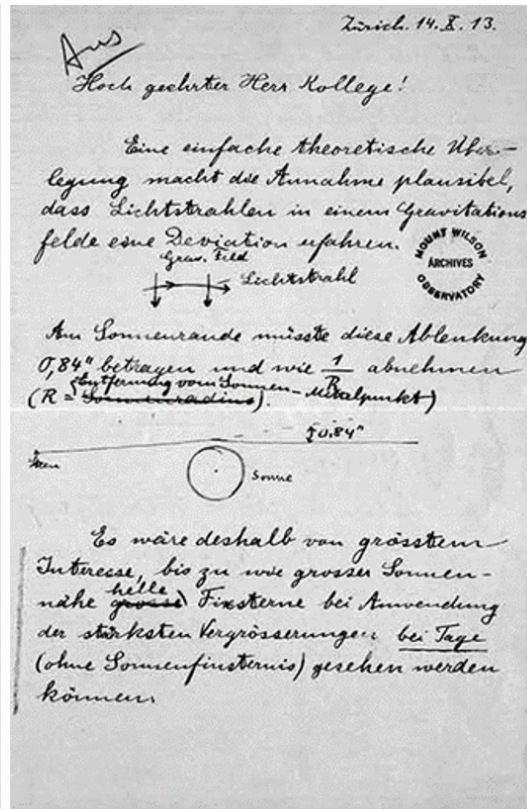 Zürich. 14. X. 13.
Hoch geehrter Herr Kollege!
Eine einfache theoretische Über-
legung macht die Annahme plausibel,
dass Lichtstrahlen in einem Gravitations
felde eine Deviation erfahren.
Grav. Feld
Lichtstrahl
MOUNT WILSON
ARCHIVES
OBSERVATORY
Am Sonnenrande müsste diese Ablenkung
0,84" betragen und wie 1/R abnehmen
(R = Sonnenradius). Entfernung vom Sonnen-Mittelpunkt)
0.84"
Stern
Sonne
Es wäre deshalb von grösstem
Interesse, bis zu wie grosser Sonnen-
nähe grosse helle Fixsterne bei Anwendung
der stärksten Vergrösserungen bei Tage
(ohne Sonnenfinsternis) gesehen werden
können.